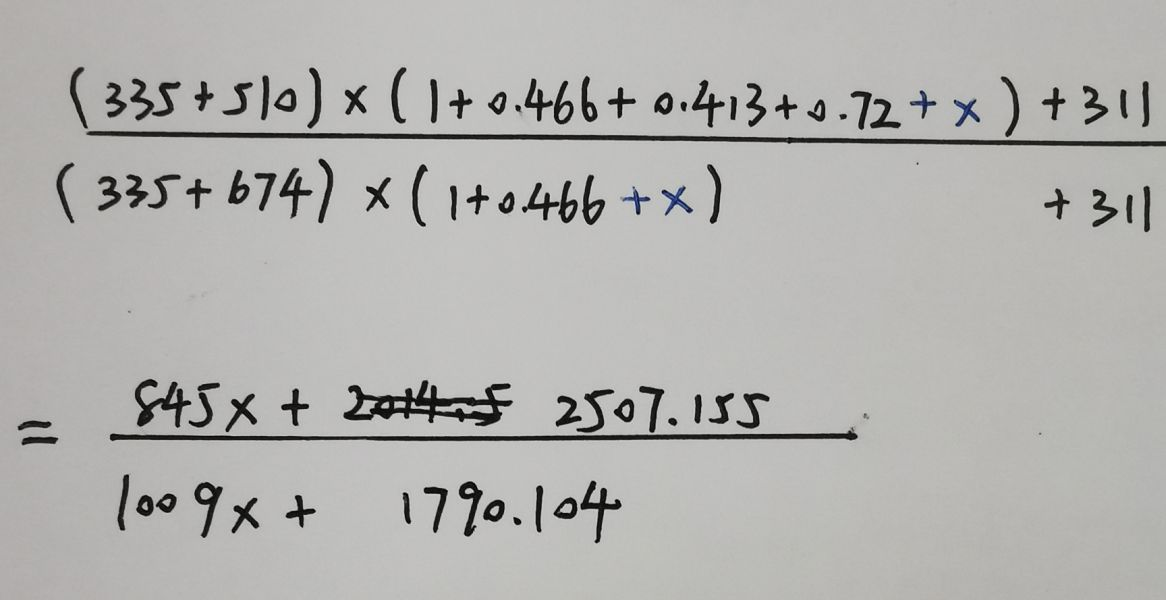 (335+510)×(1+0.466+0.413+0.72+x)+311
(335+674)×(1+0.466+x) +311
= 845x+ 2014.5 2507.155
1009x+ 1790.104